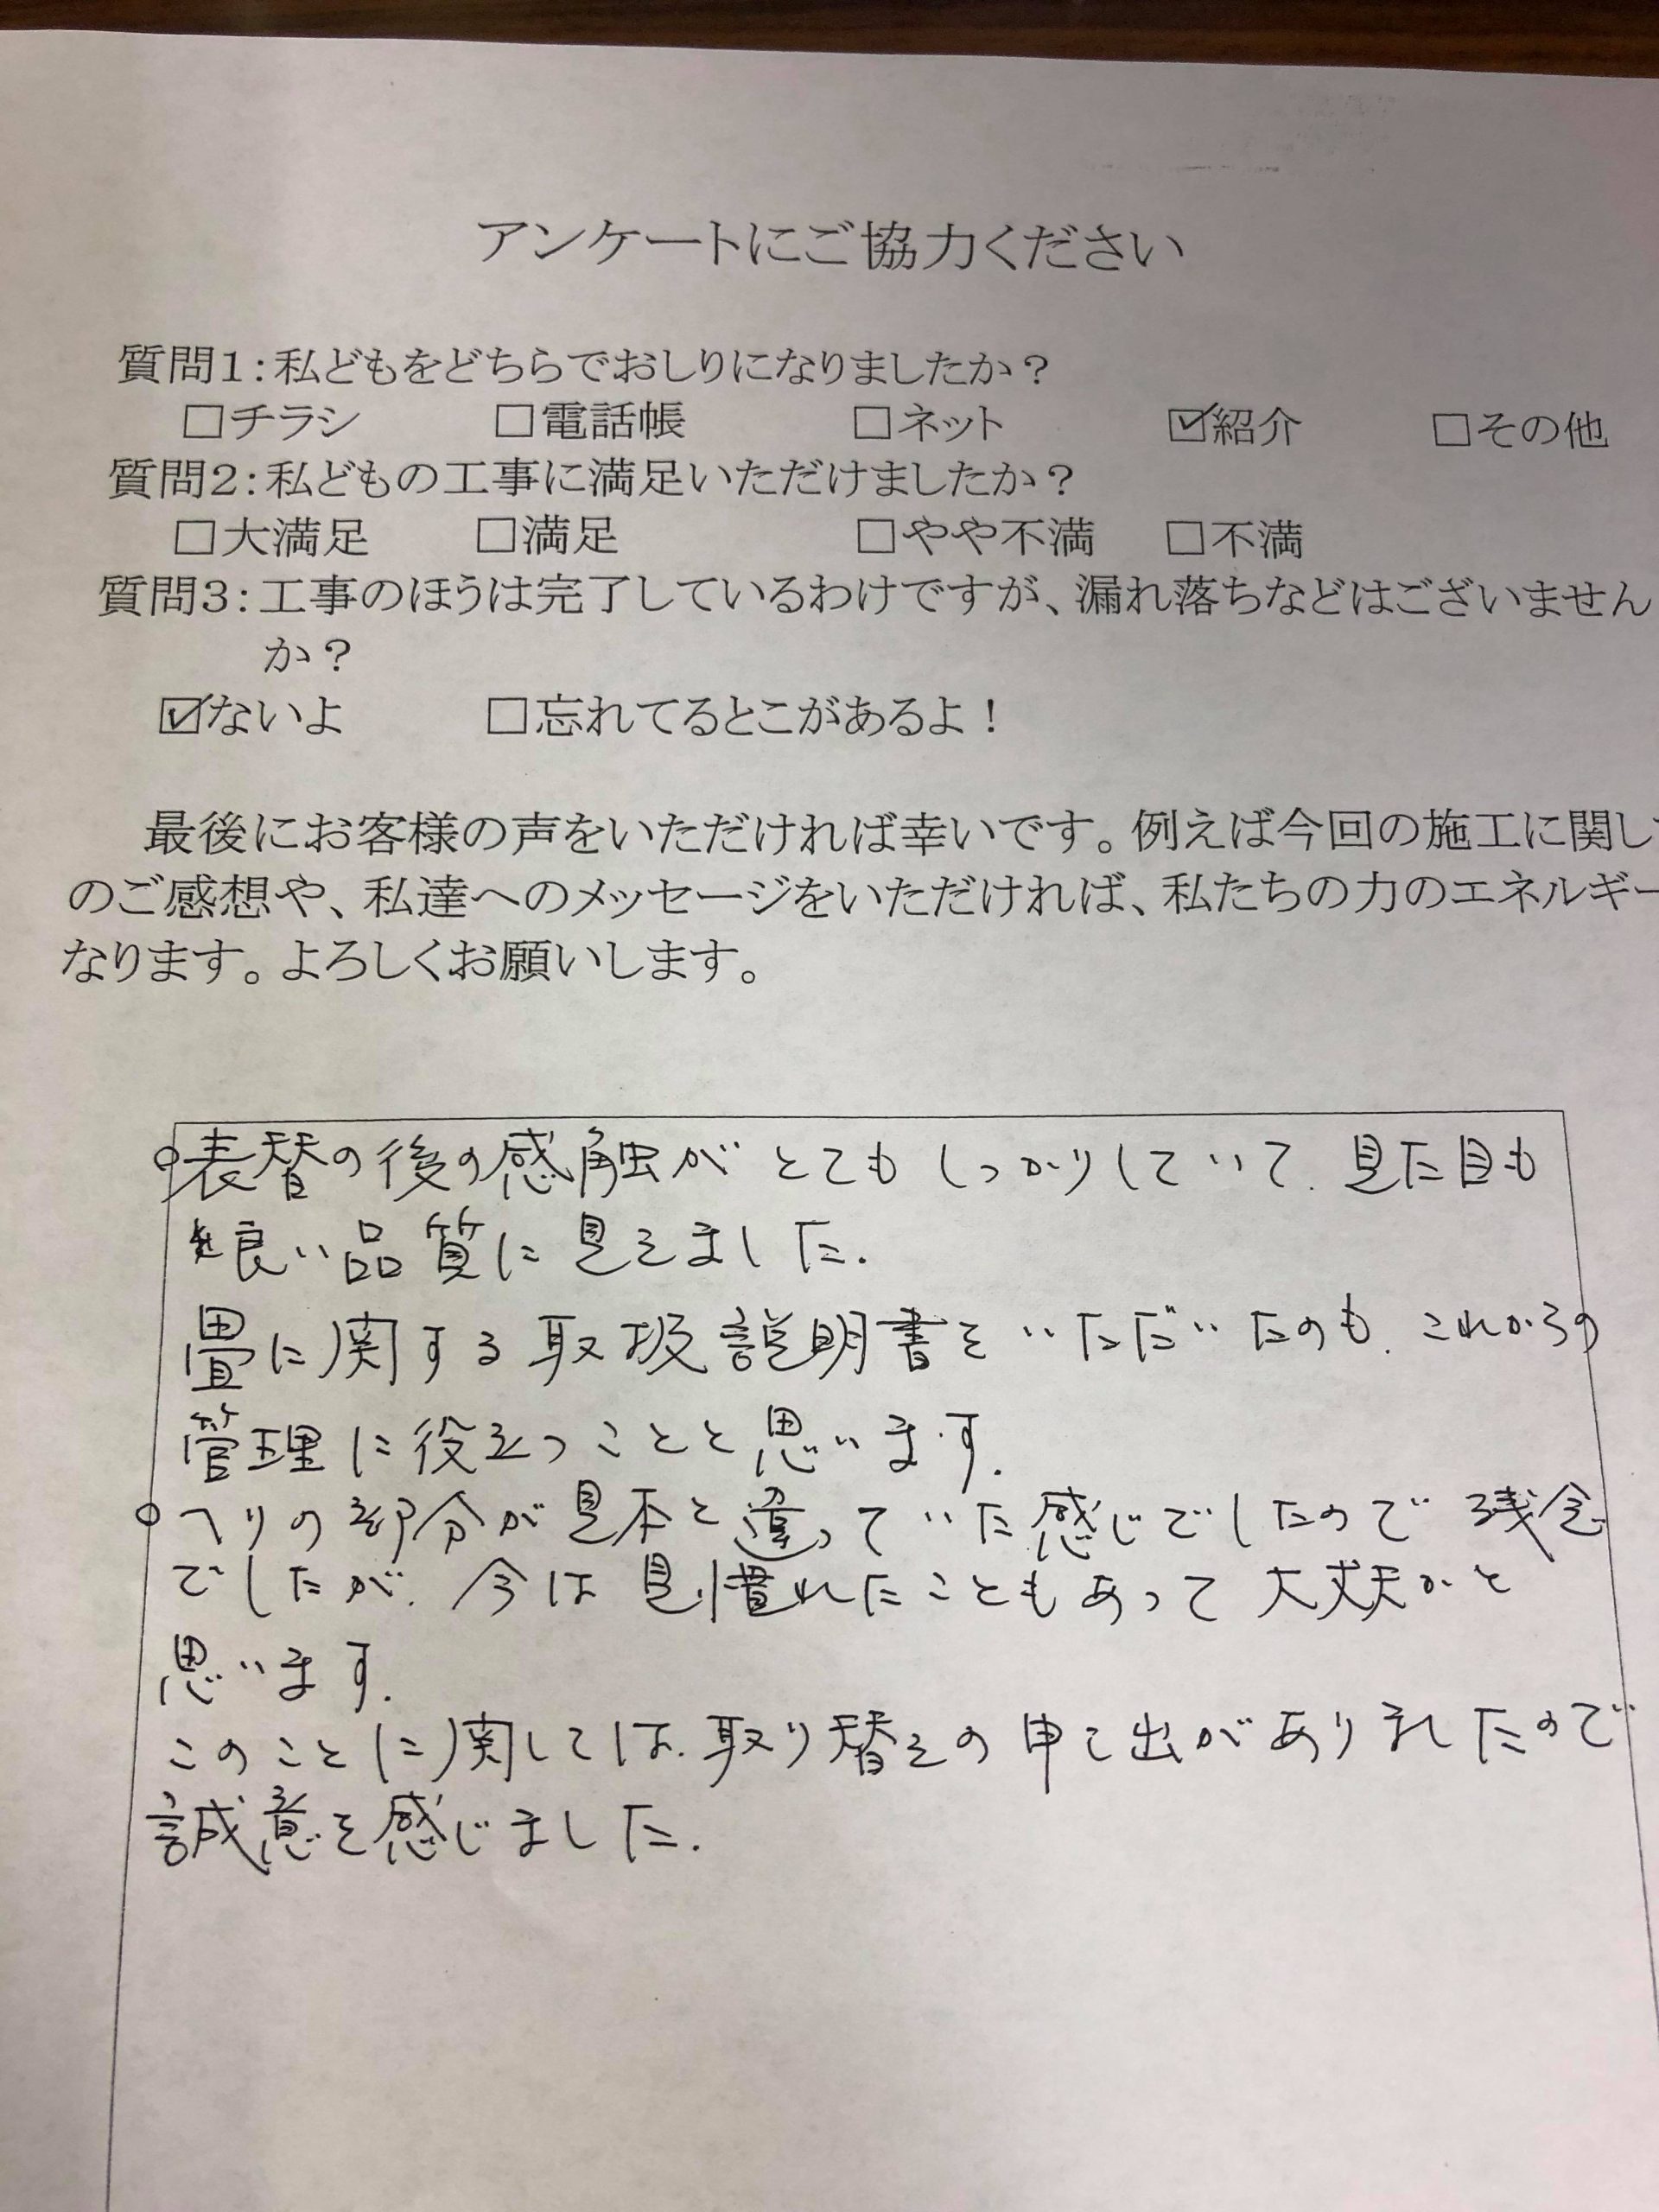 アンケートにご協力ください
質問1:私どもをどちらでおしりになりましたか?
□チラシ □電話帳 □ネット ☑紹介 □その他
質問2:私どもの工事に満足いただけましたか?
□大満足 □満足 □やや不満 □不満
質問3:工事のほうは完了しているわけですが、漏れ落ちなどはございません
か?
☑ないよ □忘れてるとこがあるよ!
最後にお客様の声をいただければ幸いです。例えば今回の施工に関し
のご感想や、私達へのメッセージをいただければ、私たちの力のエネルギー
なります。よろしくお願いします。
○表替の後の感触がとてもしっかりしていて、見た目も
良い品質に見えました。
畳に関する取扱説明書をいただいたのも、これからの
管理に役立つことと思います。
○ヘリの部分が見本と違っていた感じでしたので残念
でしたが、今は見慣れたこともあって大丈夫かと
思います。
このことに関しては、取り替えの申し出がありましたので
誠意を感じました。